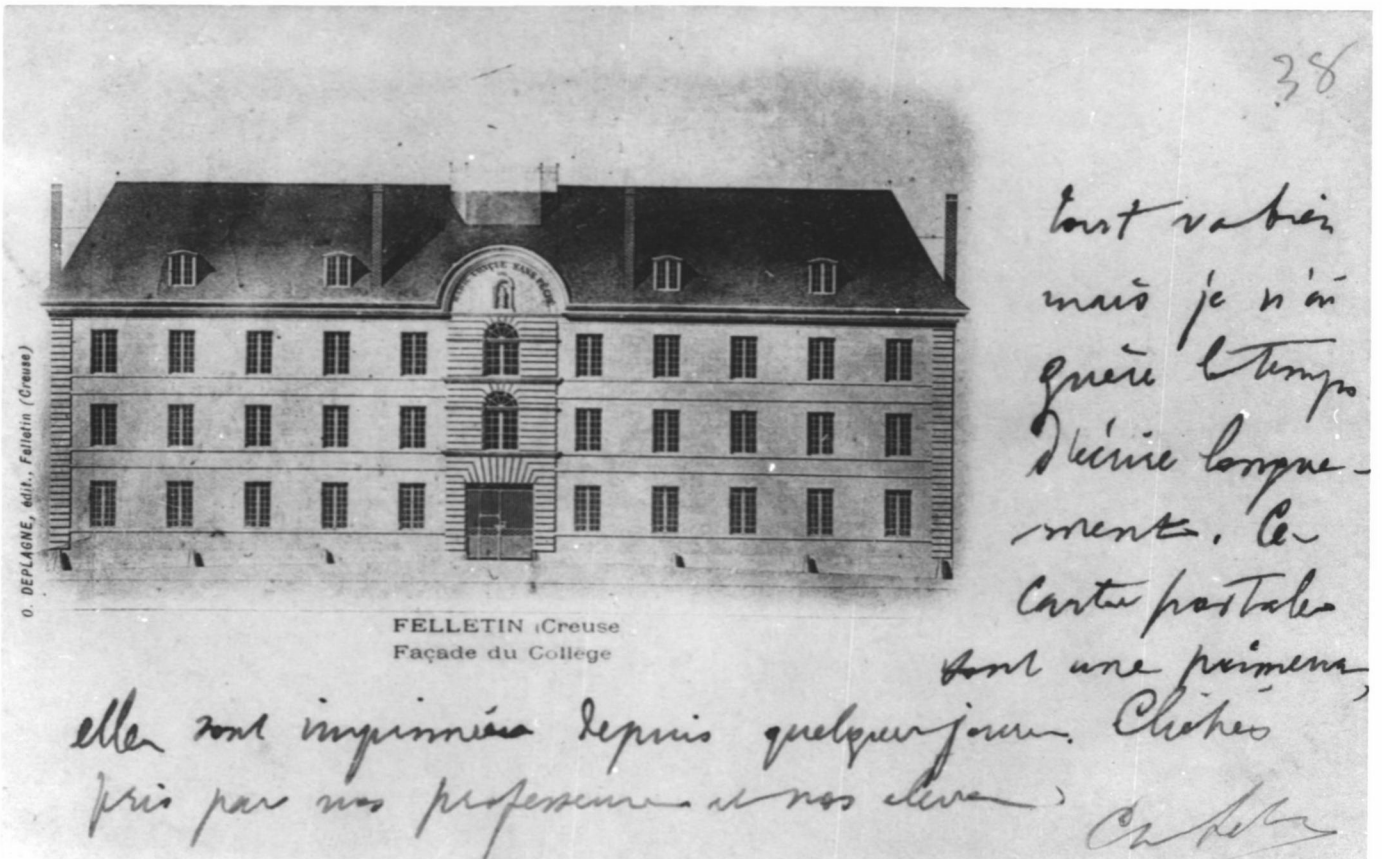 38
MARIE CONÇUE SANS PÉCHÉ
O. DEPLAGNE, édit., Felletin (Creuse)
FELLETIN (Creuse
Façade du Collège
tout va bien
mais je n'ai
guère le temps
d'écrire longue-
ment. Ces
cartes postales
sont une primeur,
elles sont imprimées depuis quelques jours. Clichés
pris par nos professeurs et nos élèves.